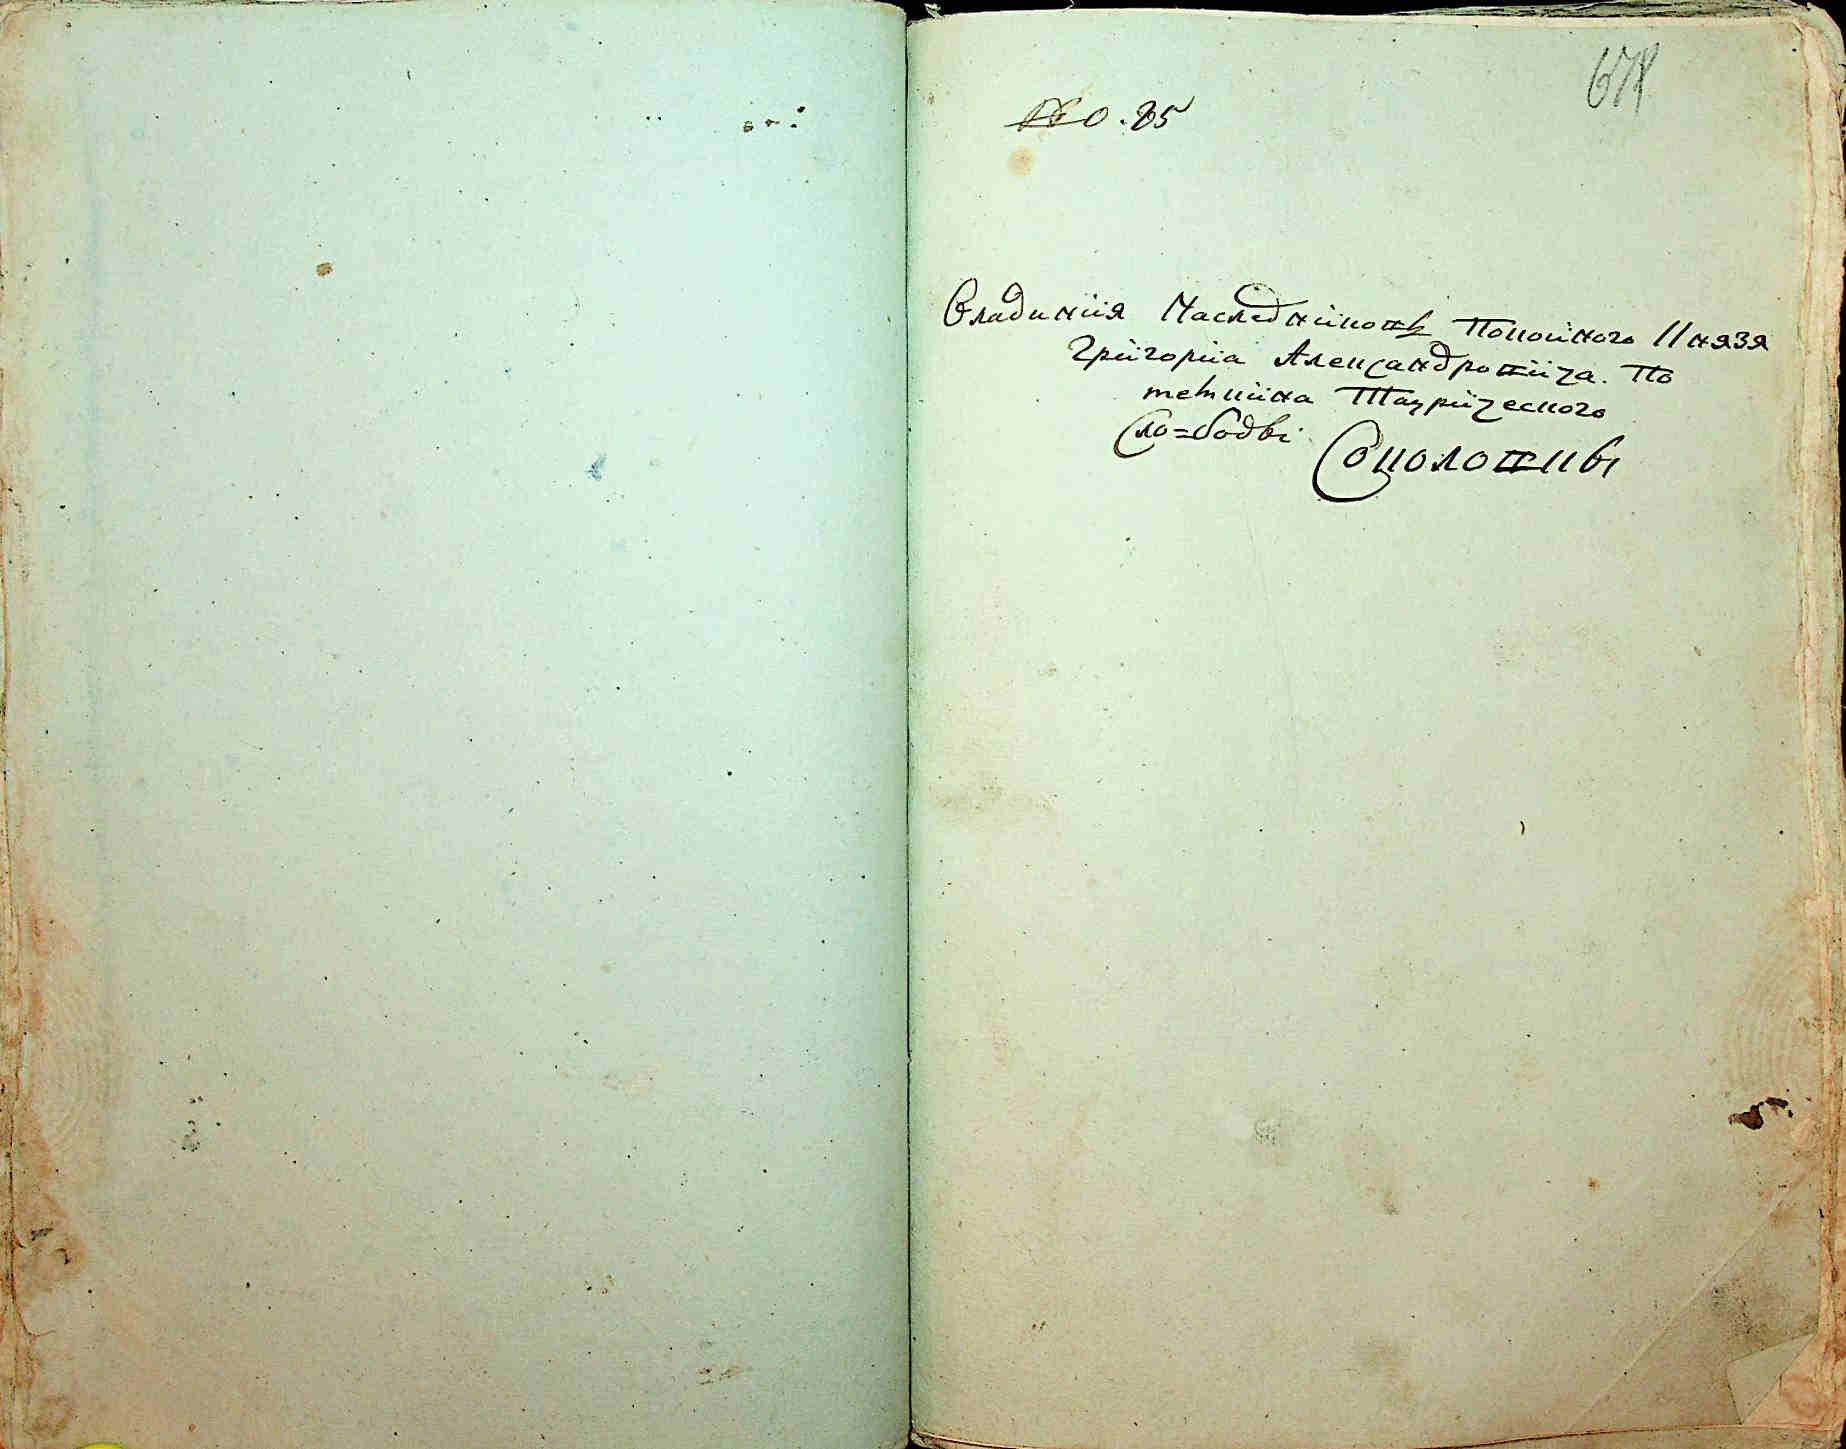 678
№ 0. 85
Владинiия Наследниковъ Покоиного Князя
Григориа Александровича. По
темкина Таврического
Сло=бодьi
Соколовкьi